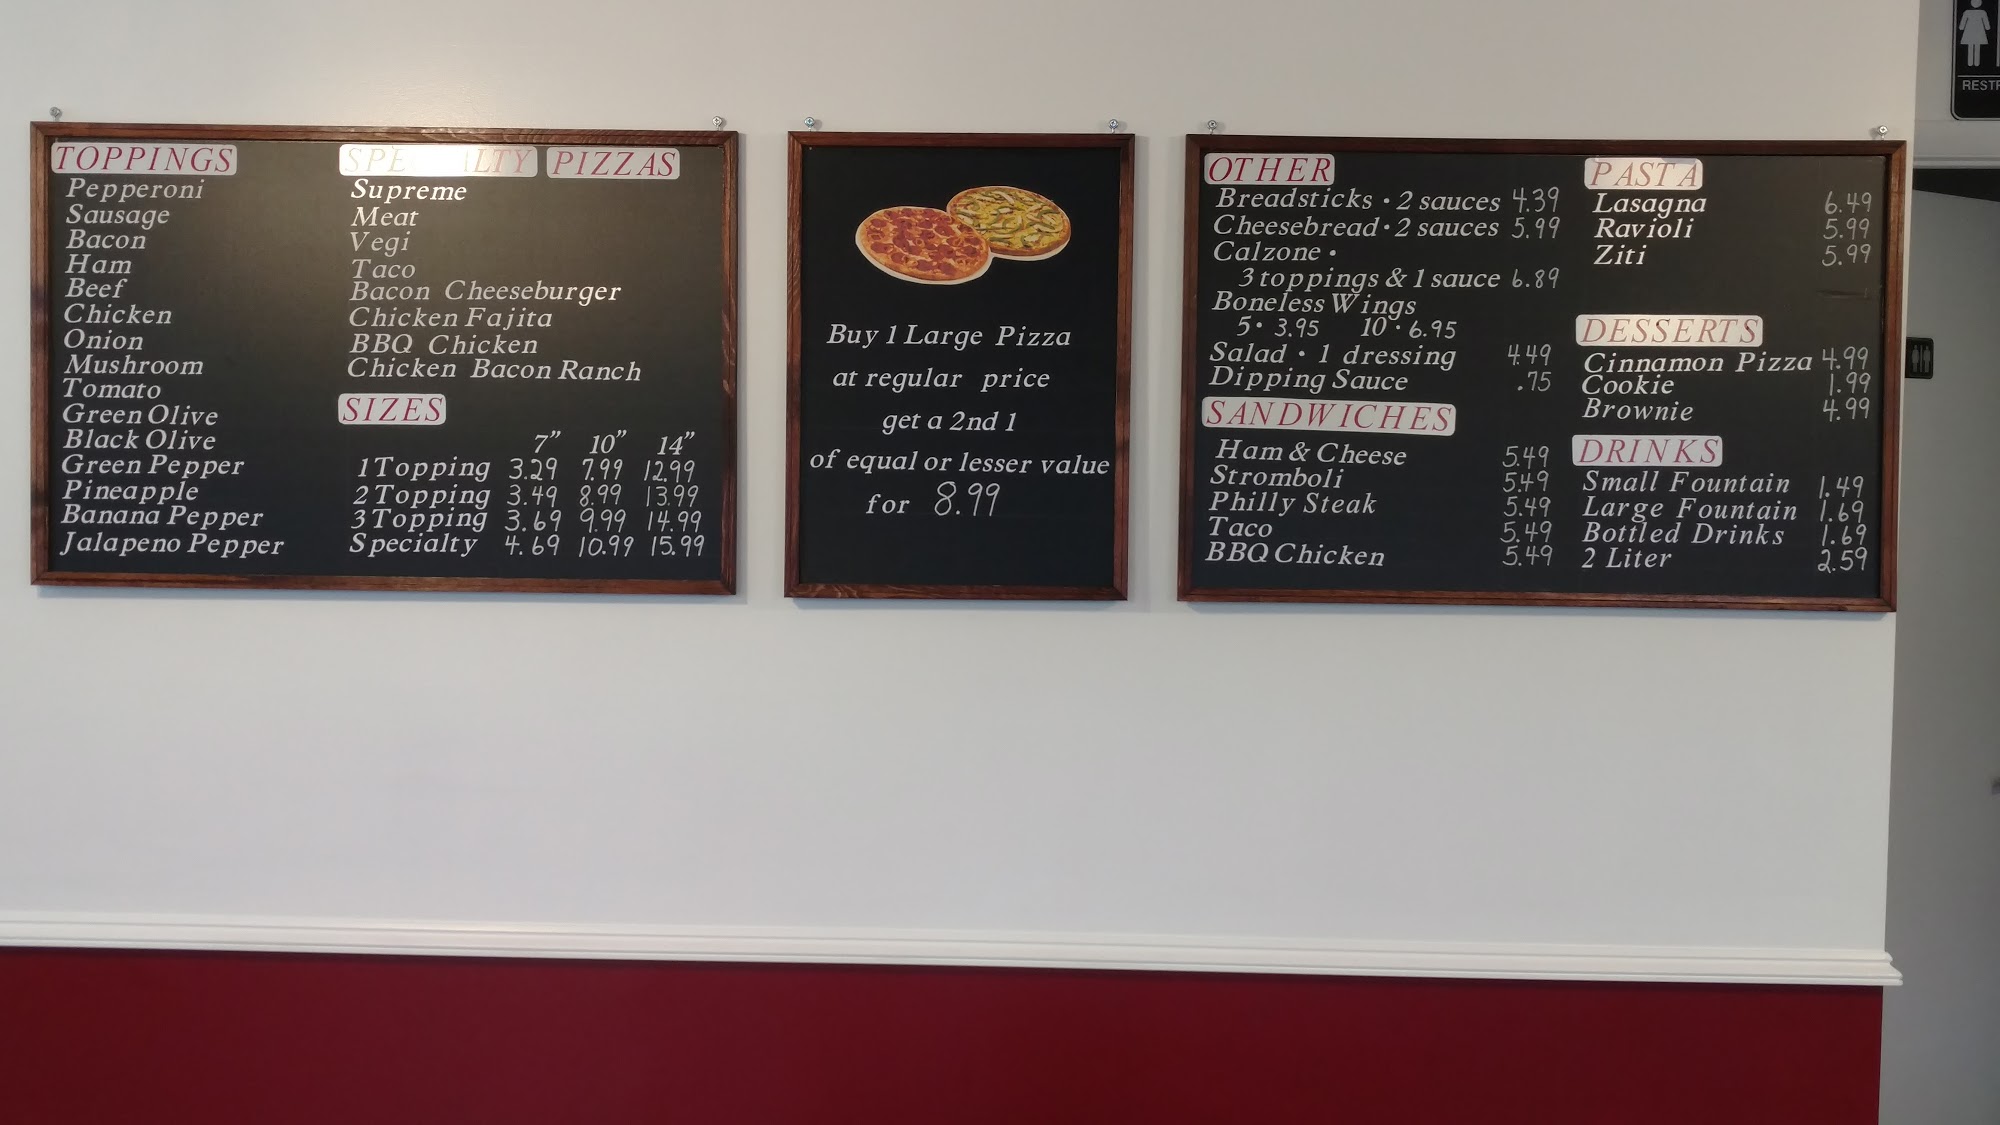 TOPPINGS
Pepperoni
Sausage
Bacon
Ham
Beef
Chicken
Onion
Mushroom
Tomato
Green Olive
Black Olive
Green Pepper
Pineapple
Banana Pepper
Jalapeno Pepper
SPECIALTY PIZZAS
Supreme
Meat
Vegi
Taco
Bacon Cheeseburger
Chicken Fajita
BBQ Chicken
Chicken Bacon Ranch
SIZES
7" 10" 14"
1 Topping 3.29 7.99 12.99
2 Topping 3.49 8.99 13.99
3 Topping 3.69 9.99 14.99
Specialty 4.69 10.99 15.99
Buy 1 Large Pizza
at regular price
get a 2nd 1
of equal or lesser value
for 8.99
OTHER
Breadsticks • 2 sauces 4.39
Cheesebread • 2 sauces 5.99
Calzone •
3 toppings & 1 sauce 6.89
Boneless Wings
5 • 3.95 10 • 6.95
Salad • 1 dressing 4.49
Dipping Sauce .75
SANDWICHES
Ham & Cheese 5.49
Stromboli 5.49
Philly Steak 5.49
Taco 5.49
BBQ Chicken 5.49
PASTA
Lasagna 6.49
Ravioli 5.99
Ziti 5.99
DESSERTS
Cinnamon Pizza 4.99
Cookie 1.99
Brownie 4.99
DRINKS
Small Fountain 1.49
Large Fountain 1.69
Bottled Drinks 1.69
2 Liter 2.59